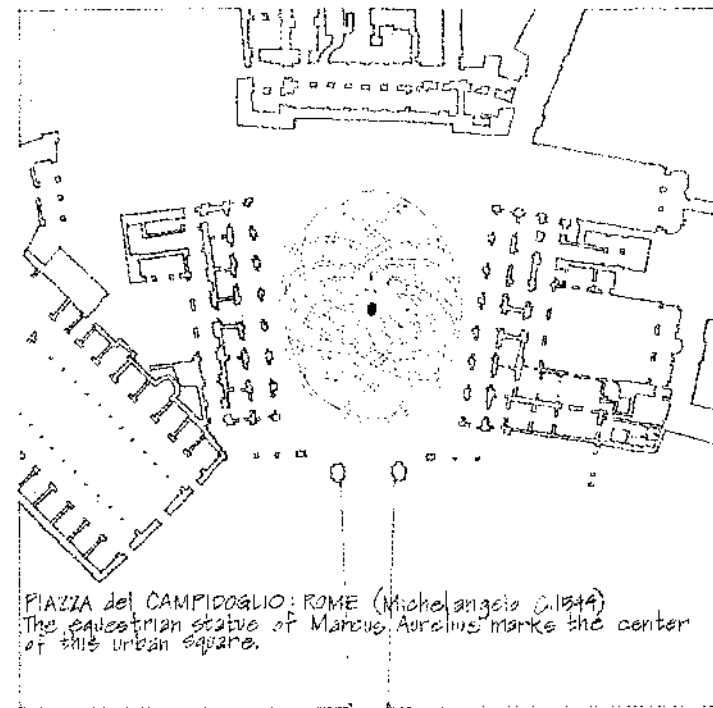 PIAZZA del CAMPIDOGLIO: ROME (Michelangelo C.1544)
The equestrian statue of Marcus Aurelius marks the center
of this urban square.